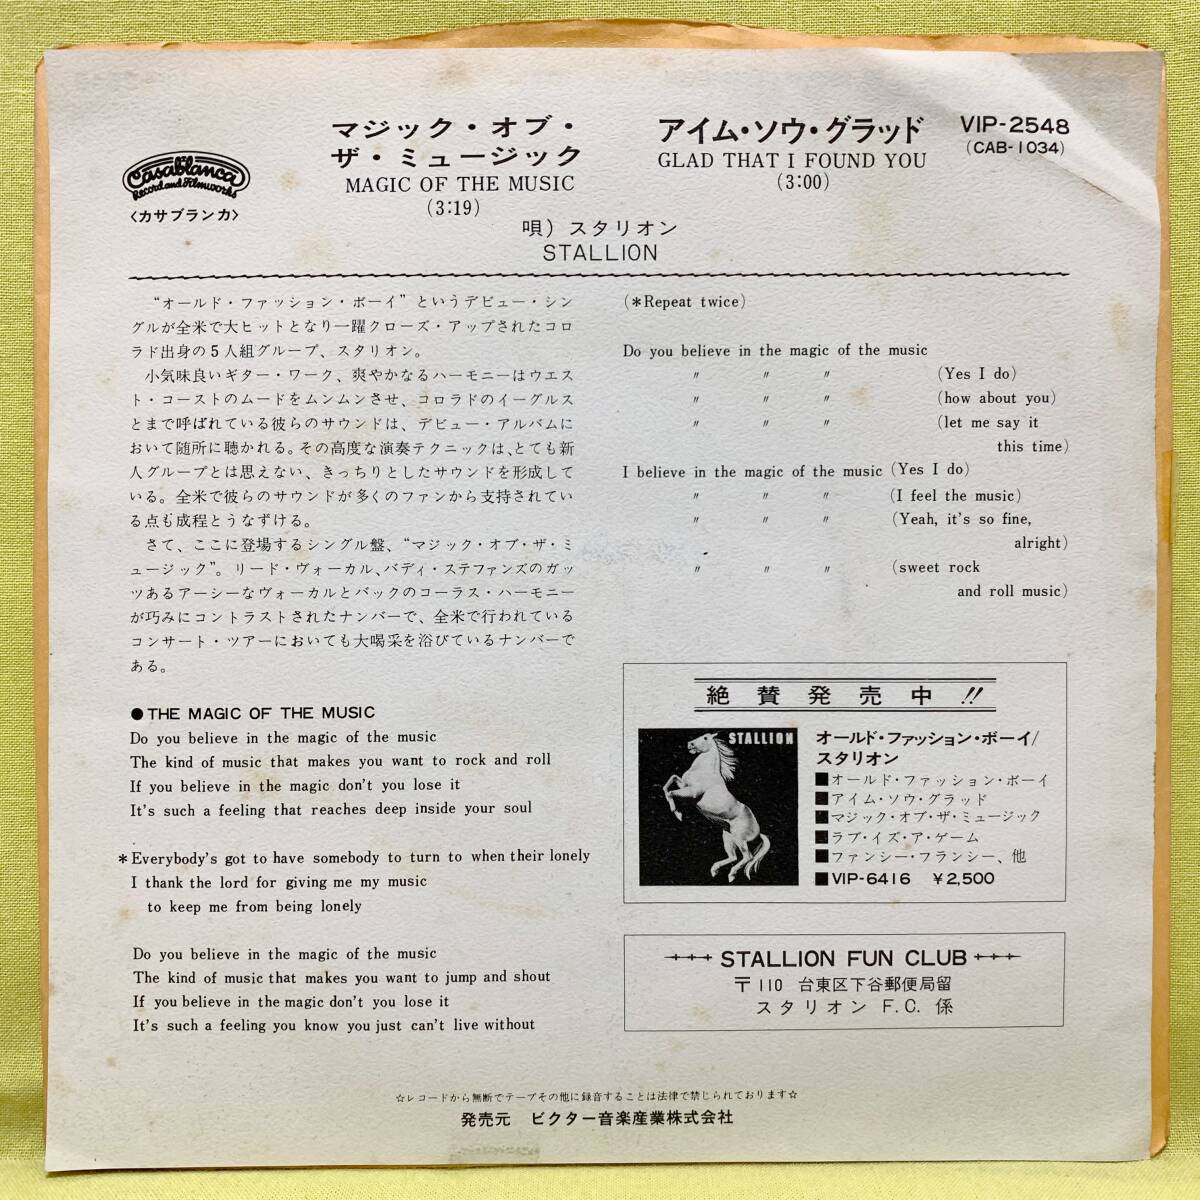 Casablanca
Record and Filmworks
〈カサブランカ〉
マジック・オブ・
ザ・ミュージック
MAGIC OF THE MUSIC
(3:19)
アイム・ソウ・グラッド
GLAD THAT I FOUND YOU
(3:00)
VIP-2548
(CAB-1034)
唄）スタリオン
STALLION
“オールド・ファッション・ボーイ”というデビュー・シン
グルが全米で大ヒットとなり一躍クローズ・アップされたコロ
ラド出身の5人組グループ、スタリオン。
小気味良いギター・ワーク、爽やかなるハーモニーはウエス
ト・コーストのムードをムンムンさせ、コロラドのイーグルス
とまで呼ばれている彼らのサウンドは、デビュー・アルバムに
おいて随所に聴かれる。その高度な演奏テクニックは、とても新
人グループとは思えない、きっちりとしたサウンドを形成して
いる。全米で彼らのサウンドが多くのファンから支持されてい
る点も成程とうなずける。
さて、ここに登場するシングル盤、“マジック・オブ・ザ・ミ
ュージック”。リード・ヴォーカル、バディ・ステファンズのガッ
ツあるアーシーなヴォーカルとバックのコーラス・ハーモニー
が巧みにコントラストされたナンバーで、全米で行われている
コンサート・ツアーにおいても大喝采を浴びているナンバーで
ある。
●THE MAGIC OF THE MUSIC
Do you believe in the magic of the music
The kind of music that makes you want to rock and roll
If you believe in the magic don't you lose it
It's such a feeling that reaches deep inside your soul
*Everybody's got to have somebody to turn to when their lonely
I thank the lord for giving me my music
to keep me from being lonely
Do you believe in the magic of the music
The kind of music that makes you want to jump and shout
If you believe in the magic don't you lose it
It's such a feeling you know you just can't live without
(*Repeat twice)
Do you believe in the magic of the music
〃 〃 〃 (Yes I do)
〃 〃 〃 (how about you)
〃 〃 〃 (let me say it
this time)
I believe in the magic of the music (Yes I do)
〃 〃 〃 (I feel the music)
〃 〃 〃 (Yeah, it's so fine,
alright)
〃 〃 〃 (sweet rock
and roll music)
絶賛発売中!!
STALLION
オールド・ファッション・ボーイ/
スタリオン
■オールド・ファッション・ボーイ
■アイム・ソウ・グラッド
■マジック・オブ・ザ・ミュージック
■ラブ・イズ・ア・ゲーム
■ファンシー・フランシー、他
■VIP-6416 ¥2,500
STALLION FUN CLUB
〒110 台東区下谷郵便局留
スタリオン F.C. 係
☆レコードから無断でテープその他に録音することは法律で禁じられております☆
発売元 ビクター音楽産業株式会社